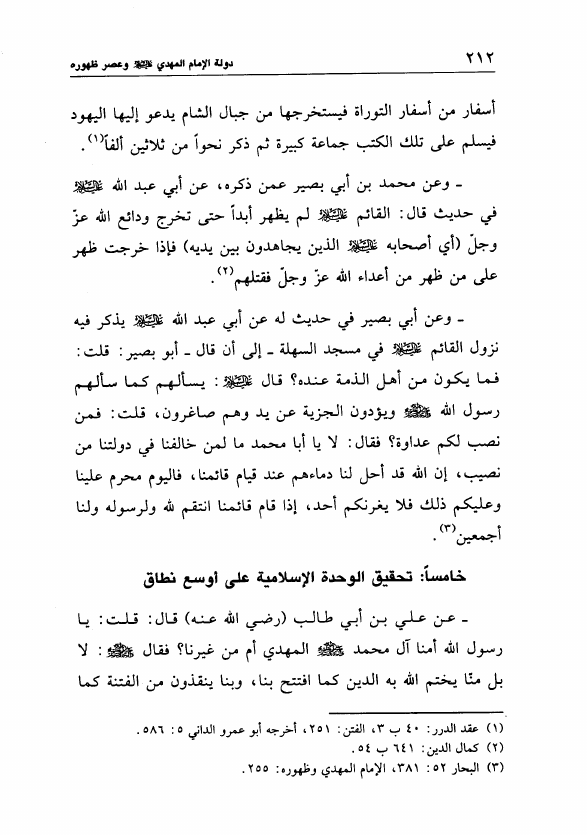 ٢١٢
دولة الإمام المهدي عليه السلام وعصر ظهوره
أسفار من أسفار التوراة فيستخرجها من جبال الشام يدعو إليها اليهود
فيسلم على تلك الكتب جماعة كبيرة ثم ذكر نحواً من ثلاثين ألفاً(١).
ـ وعن محمد بن أبي بصير عمن ذكره، عن أبي عبد الله عليه السلام
في حديث قال: القائم عليه السلام لم يظهر أبداً حتى تخرج ودائع الله عزّ
وجلّ (أي أصحابه عليه السلام الذين يجاهدون بين يديه) فإذا خرجت ظهر
على من ظهر من أعداء الله عزّ وجلّ فقتلهم(٢).
ـ وعن أبي بصير في حديث له عن أبي عبد الله عليه السلام يذكر فيه
نزول القائم عليه السلام في مسجد السهلة ـ إلى أن قال ـ أبو بصير: قلت:
فما يكون من أهل الذمة عنده؟ قال عليه السلام: يسألهم كما سألهم
رسول الله ﷺ ويؤدون الجزية عن يد وهم صاغرون، قلت: فمن
نصب لكم عداوة؟ فقال: لا يا أبا محمد ما لمن خالفنا في دولتنا من
نصيب، إن الله قد أحل لنا دماءهم عند قيام قائمنا، فاليوم محرم علينا
وعليكم ذلك فلا يغرنكم أحد، إذا قام قائمنا انتقم لله ولرسوله ولنا
أجمعين(٣).
خامساً: تحقيق الوحدة الإسلامية على أوسع نطاق
ـ عن علي بن أبي طالب (رضي الله عنه) قال: قلت: يا
رسول الله أمنا آل محمد ﷺ المهدي أم من غيرنا؟ فقال ﷺ: لا
بل منّا يختم الله به الدين كما افتتح بنا، وبنا ينقذون من الفتنة كما
(١) عقد الدرر: ٤٠ ب ٣، الفتن: ٢٥١، أخرجه أبو عمرو الداني ٥: ٥٨٦.
(٢) كمال الدين: ٦٤١ ب ٥٤.
(٣) البحار ٥٢: ٣٨١، الإمام المهدي وظهوره: ٢٥٥.